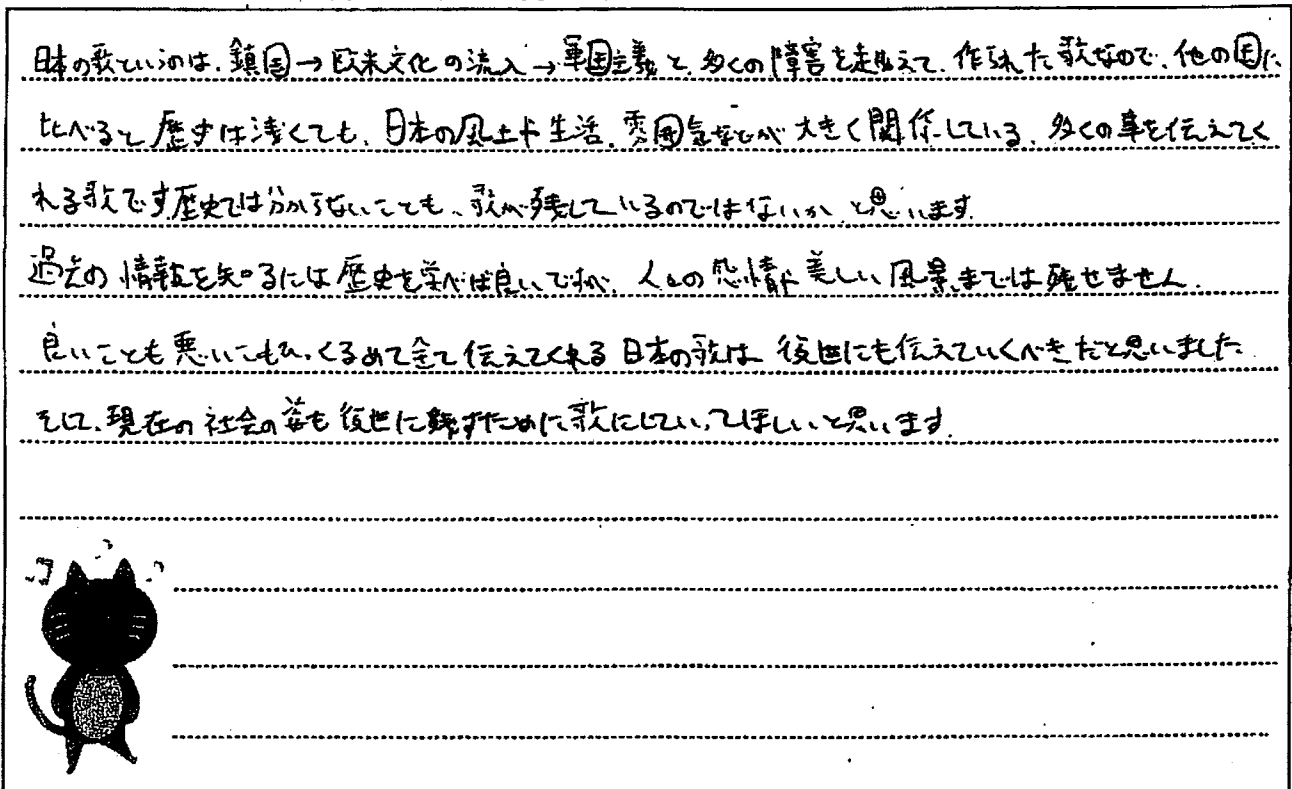 日本の歌というのは、鎖国→欧米文化の流入→軍国主義と、多くの障害を越えて、作られた歌なので、他の国に
比べると歴史は浅くても、日本の風土や生活、雰囲気などが大きく関係している、多くの事を伝えてく
れる歌です歴史では分からないことも、歌が残しているのではないか、と思います。
過去の情報を知るには歴史を学べば良いですが、人々の感情や美しい風景までは残せません。
良いことも悪いこともひっくるめて全て伝えてくれる日本の歌は、後世にも伝えていくべきだと思いました。
そして、現在の社会の姿も後世に残すために歌にしていってほしいと思います。